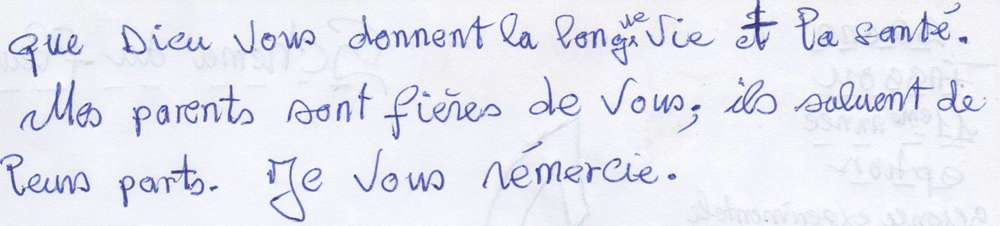 que Dieu vous donnent la longue vie et la santé.
Mes parents sont fières de vous; ils saluent de
leurs parts. Je vous rémercie.